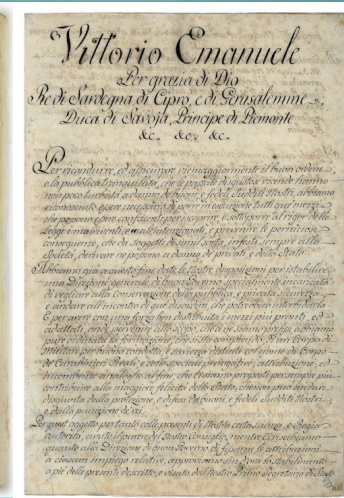 Vittorio Emanuele
Per grazia di Dio
Re di Sardegna di Cipro, e di Gerusalemme
Duca di Savoja, Principe di Piemonte
&c. &c. &c.
Per ricondurre, ed assicurare viemaggiormente il buon ordine,
e la pubblica tranquillità, che le passate disgustose vicende hanno
non poco turbata a danno de' buoni, e fedeli Sudditi Nostri, abbiamo
riconosciuto essere necessario di porre in esecuzione tutti que' mezzi,
che possono essere confacenti per iscoprire, e sottoporre al rigor della
Legge i malviventi, e male intenzionati, e prevenire le perniciose
conseguenze, che da soggetti di simil sorta, infesta sempre alla
Società, derivare ne possono a danno de' privati, e dello Stato.
Abbiamo già a questo fine date le Nostre disposizioni per istabilire
una Direzione generale di buon Governo specialmente incaricata
di vegliare alla conservazione della pubblica, e privata sicurezza,
e andare all'incontro di que' disordini, che potrebbero intorbidarla.
E per avere con una forza ben distribuita i mezzi più pronti, ed
adattati, onde pervenire allo scopo, che ce ne siamo prefissi abbiamo
pure ordinata la formazione, che si sta compiendo, di un Corpo di
Militari per buona condotta, e saviezza distinti col nome di Corpo
de' Carabinieri Reali, e colle speciali prerogative, attribuzioni, ed
incombenze analoghe al fine, che ci siamo proposti per sempre più
contribuire alla maggiore felicità dello Stato, che non può andare
disgiunta dalla protezione, e difesa dei buoni, e fedeli Sudditi Nostri,
e dalla punizione de' rei.
Per quest'oggetto pertanto colle presenti di Nostra certa scienza, e Regia
autorità, avuto il parere del Nostro Consiglio, mentre Ci riserbiamo
quanto alla Direzione di buon Governo di fissarne le attribuzioni
a ciascun impiego relative, approviamo sin d'ora lo stabilimento
a piè delle presenti descritto, e vistato dal Nostro Primo Segretario di Stato